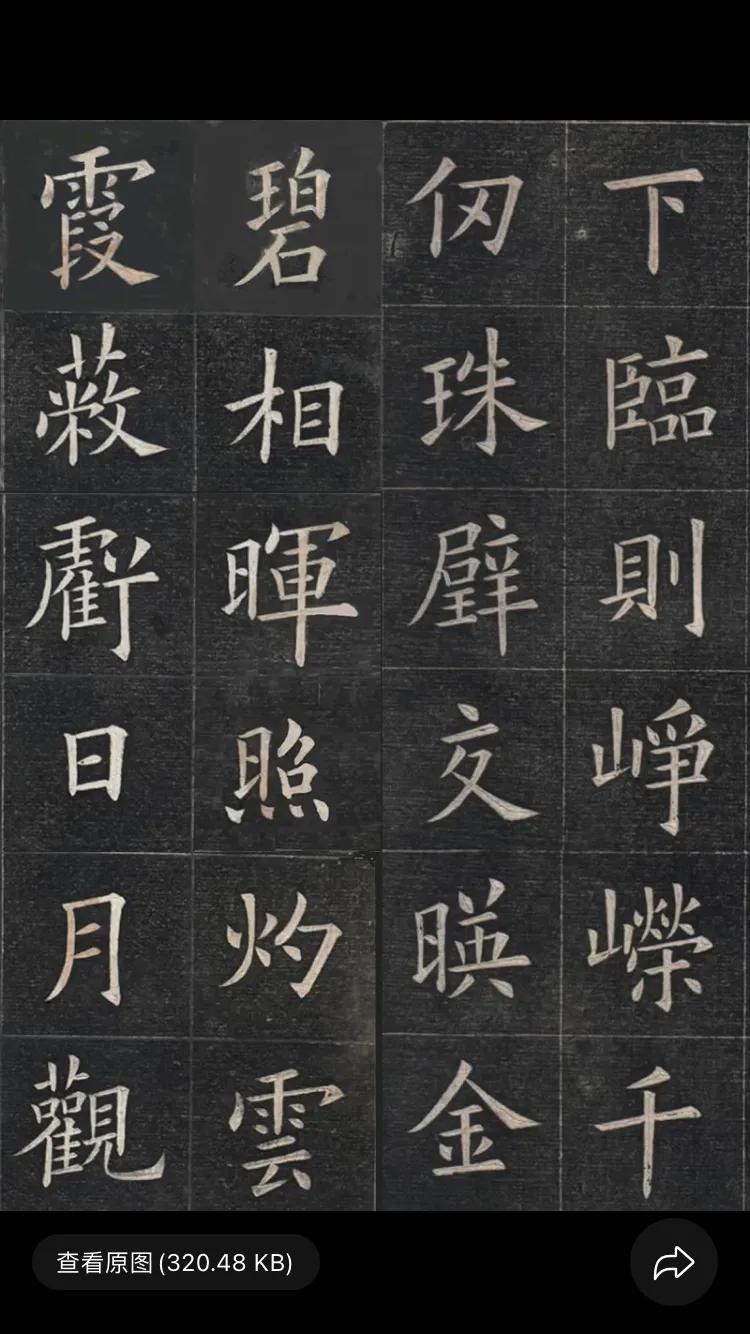 下臨則崢嶸千
仞珠璧交暎金
碧相暉照灼雲
霞蔽虧日月觀
查看原图(320.48 KB)